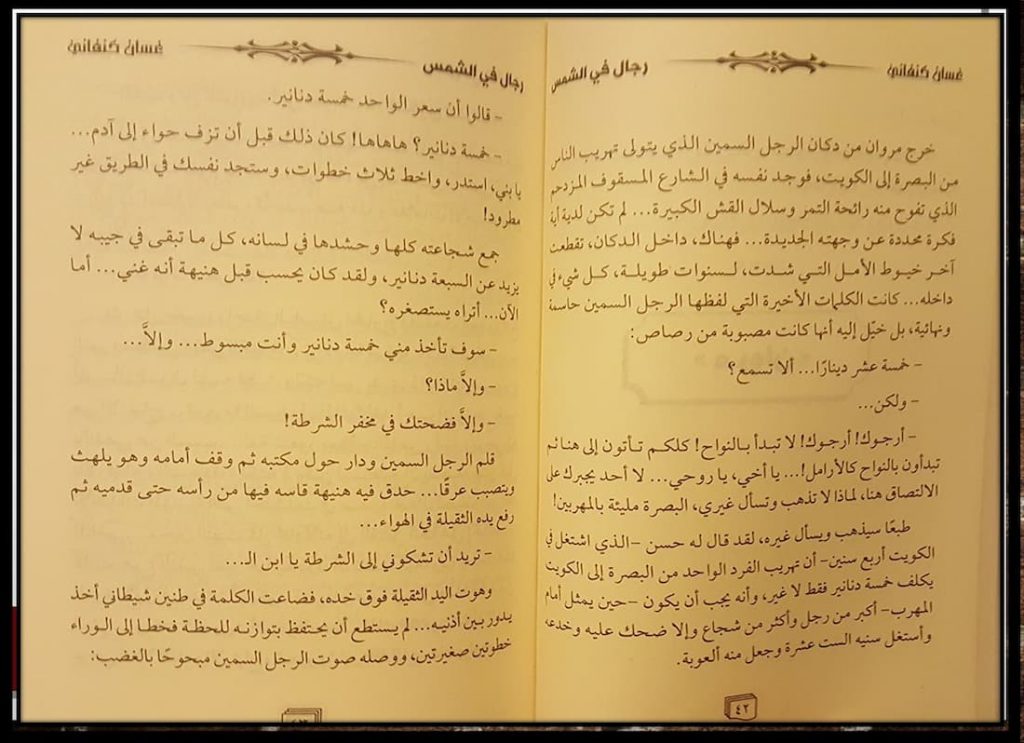 غسان كنفاني
رجال في الشمس
خرج مروان من دكان الرجل السمين الذي يتولى تهريب الناس
من البصرة إلى الكويت، فوجد نفسه في الشارع المسقوف المزدحم
الذي تفوح منه رائحة التمر وسلال القش الكبيرة... لم تكن لدية أية
فكرة محددة عن وجهته الجديدة... فهناك، داخل الدكان، تقطعت
آخر خيوط الأمل التي شدت، لسنوات طويلة، كل شيء في
داخله... كانت الكلمات الأخيرة التي لفظها الرجل السمين حاسمة
ونهائية، بل خيّل إليه أنها كانت مصبوبة من رصاص:
- خمسة عشر دينارًا... ألا تسمع؟
- ولكن...
- أرجوك! أرجوك! لا تبدأ بالنواح! كلكم تأتون إلى هنا ثم
تبدأون بالنواح كالأرامل!... يا أخي، يا روحي... لا أحد يجبرك على
الالتصاق هنا، لماذا لا تذهب وتسأل غيري، البصرة مليئة بالمهربين!
طبعًا سيذهب ويسأل غيره، لقد قال له حسن -الذي اشتغل في
الكويت أربع سنين- أن تهريب الفرد الواحد من البصرة إلى الكويت
يكلف خمسة دنانير فقط لا غير، وأنه يجب أن يكون -حين يمثل أمام
المهرب- أكبر من رجل وأكثر من شجاع وإلا ضحك عليه وخدعه،
وأستغل سنيه الست عشرة وجعل منه ألعوبة.
٤٢
رجال في الشمس
غسان كنفاني
- قالوا أن سعر الواحد خمسة دنانير.
- خمسة دنانير؟ هاهاها! كان ذلك قبل أن تزف حواء إلى آدم...
يا بني، استدر، واخط ثلاث خطوات، وستجد نفسك في الطريق غير
مطرود!
جمع شجاعته كلها وحشدها في لسانه، كل ما تبقى في جيبه لا
يزيد عن السبعة دنانير، ولقد كان يحسب قبل هنيهة أنه غني... أما
الآن... أتراه يستصغره؟
- سوف تأخذ مني خمسة دنانير وأنت مبسوط... وإلاَّ...
- وإلاَّ ماذا؟
- وإلاَّ فضحتك في مخفر الشرطة!
قلم الرجل السمين ودار حول مكتبه ثم وقف أمامه وهو يلهث
ويتصبب عرقًا... حدق فيه هنيهة قاسه فيها من رأسه حتى قدميه ثم
رفع يده الثقيلة في الهواء...
- تريد أن تشكوني إلى الشرطة يا ابن الـ...
وهوت اليد الثقيلة فوق خده، فضاعت الكلمة في طنين شيطاني أخذ
يدور بين أذنيه... لم يستطع أن يحتفظ بتوازنه للحظة فخطا إلى الوراء
خطوتين صغيرتين، ووصله صوت الرجل السمين مبحوحًا بالغضب: